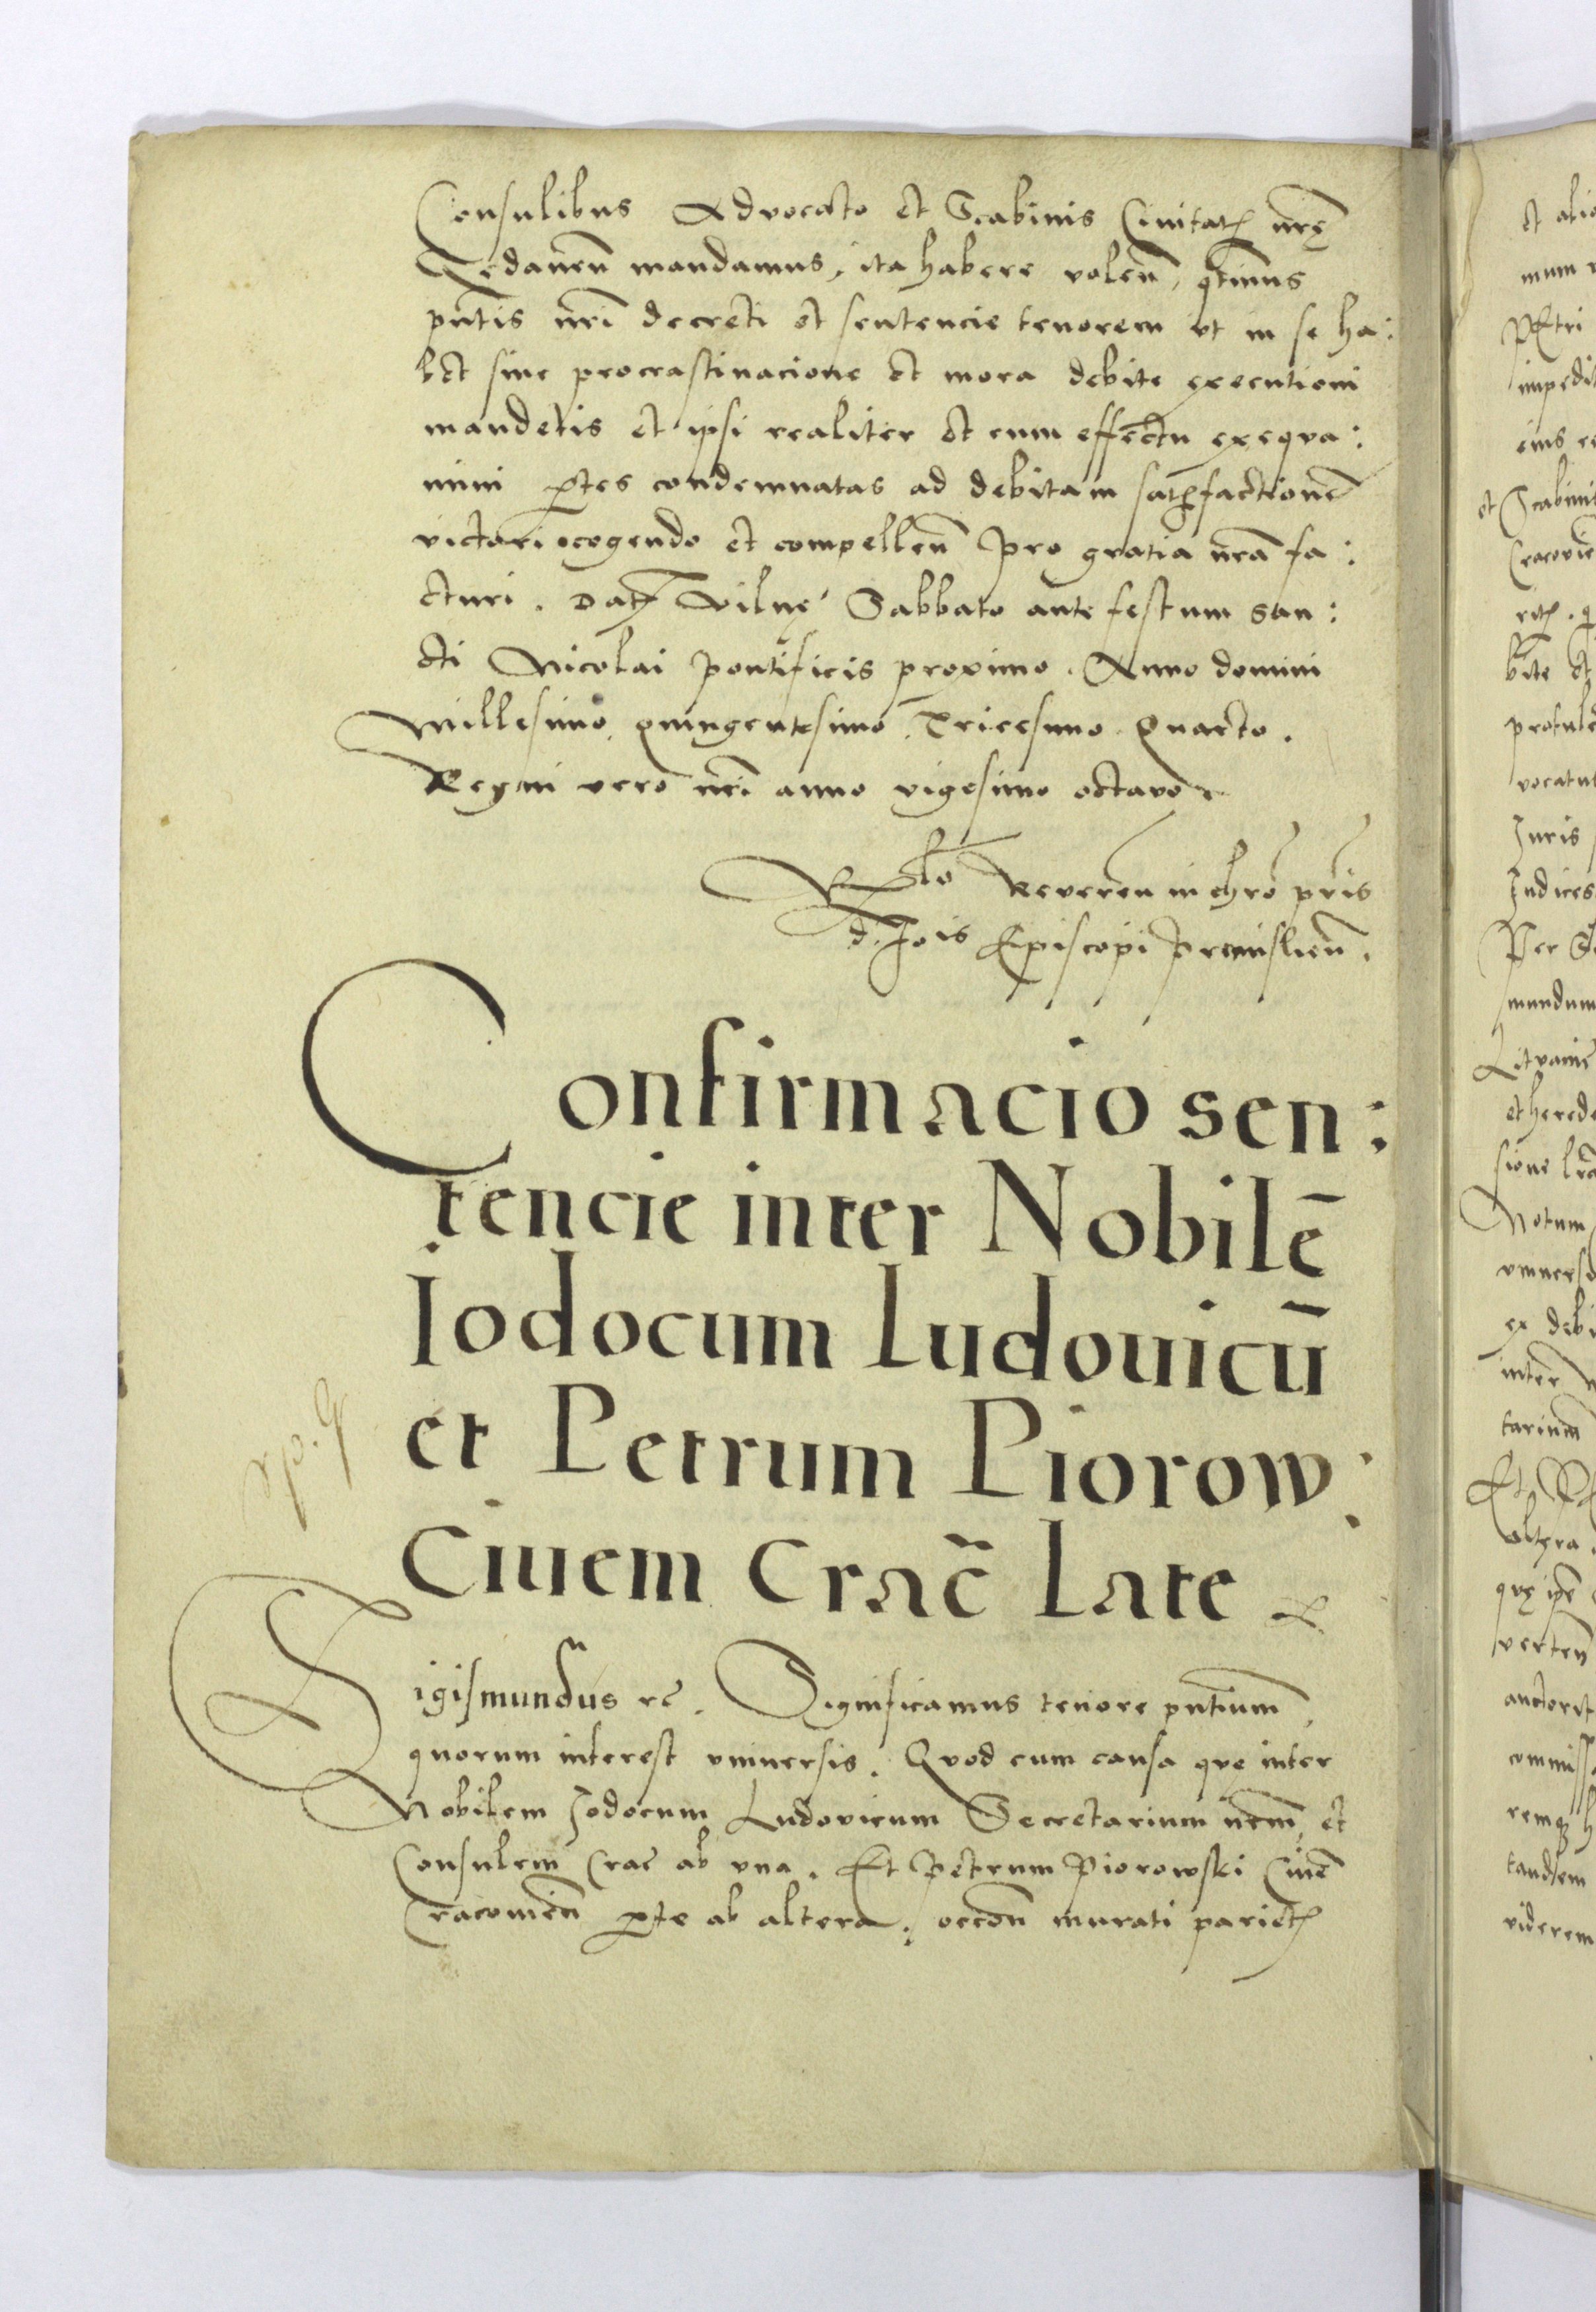 Consulibus Advocato et Scabinis Civitatꝭ nrę
Gedanen̄ mandamus, ita habere volen̄, qtinus
pn̄tis nr̄i decreti et sentencie tenorem ut in se ha:
bet sine procrastinacione et mora debite executioni
mandetis et ipsi realiter et cum effectu exequa:
mini ꝑtes condemnatas ad debitam satꝭfactionē
victori cogendo et compellen̄ pro gratia nrā fa:
cturi. Datꝭ Vilnę Sabbato ante festum san:
cti Nicolai pontificis proximo. Anno domini
Millesimo, quingentesimo, Tricesimo Quarto.
Regni vero nr̄i anno vigesimo octavo
Rlo Reveren in chrō pr̄is
d. Jois Episcopi Premislien̄.
Confirmacio sen:
tencie inter Nobilē
Jodocum Ludouicū
et Petrum Piorow:
Ciuem Crac̄ Late
Sigismundus rc̄. Significamus tenore pn̄tium,
quorum interest vniuersis. Quod cum causa que inter
Nobilem Jodocum Ludovicum Secretarium nr̄m, et
Consulem Crac̄ ab vna. Et Petrum Piorowski Ciuē
Cracouien̄ ꝑte ab altera, occōn̄ murati parietꝭ
et alio
mum
Petri
impedit
eius
et Scabini
Cracovien
ritꝭ. q
bite et
protule
vocatu
Juris
Judices
Per S
mundum
Litvanie
et herede
sione lr̄a
Notum
vniverso
ex debi
inter
tarium
Et Pe
altera
quę ipē
verten̄
auctorit
commiss
remqꝫ h
tandem
viderem